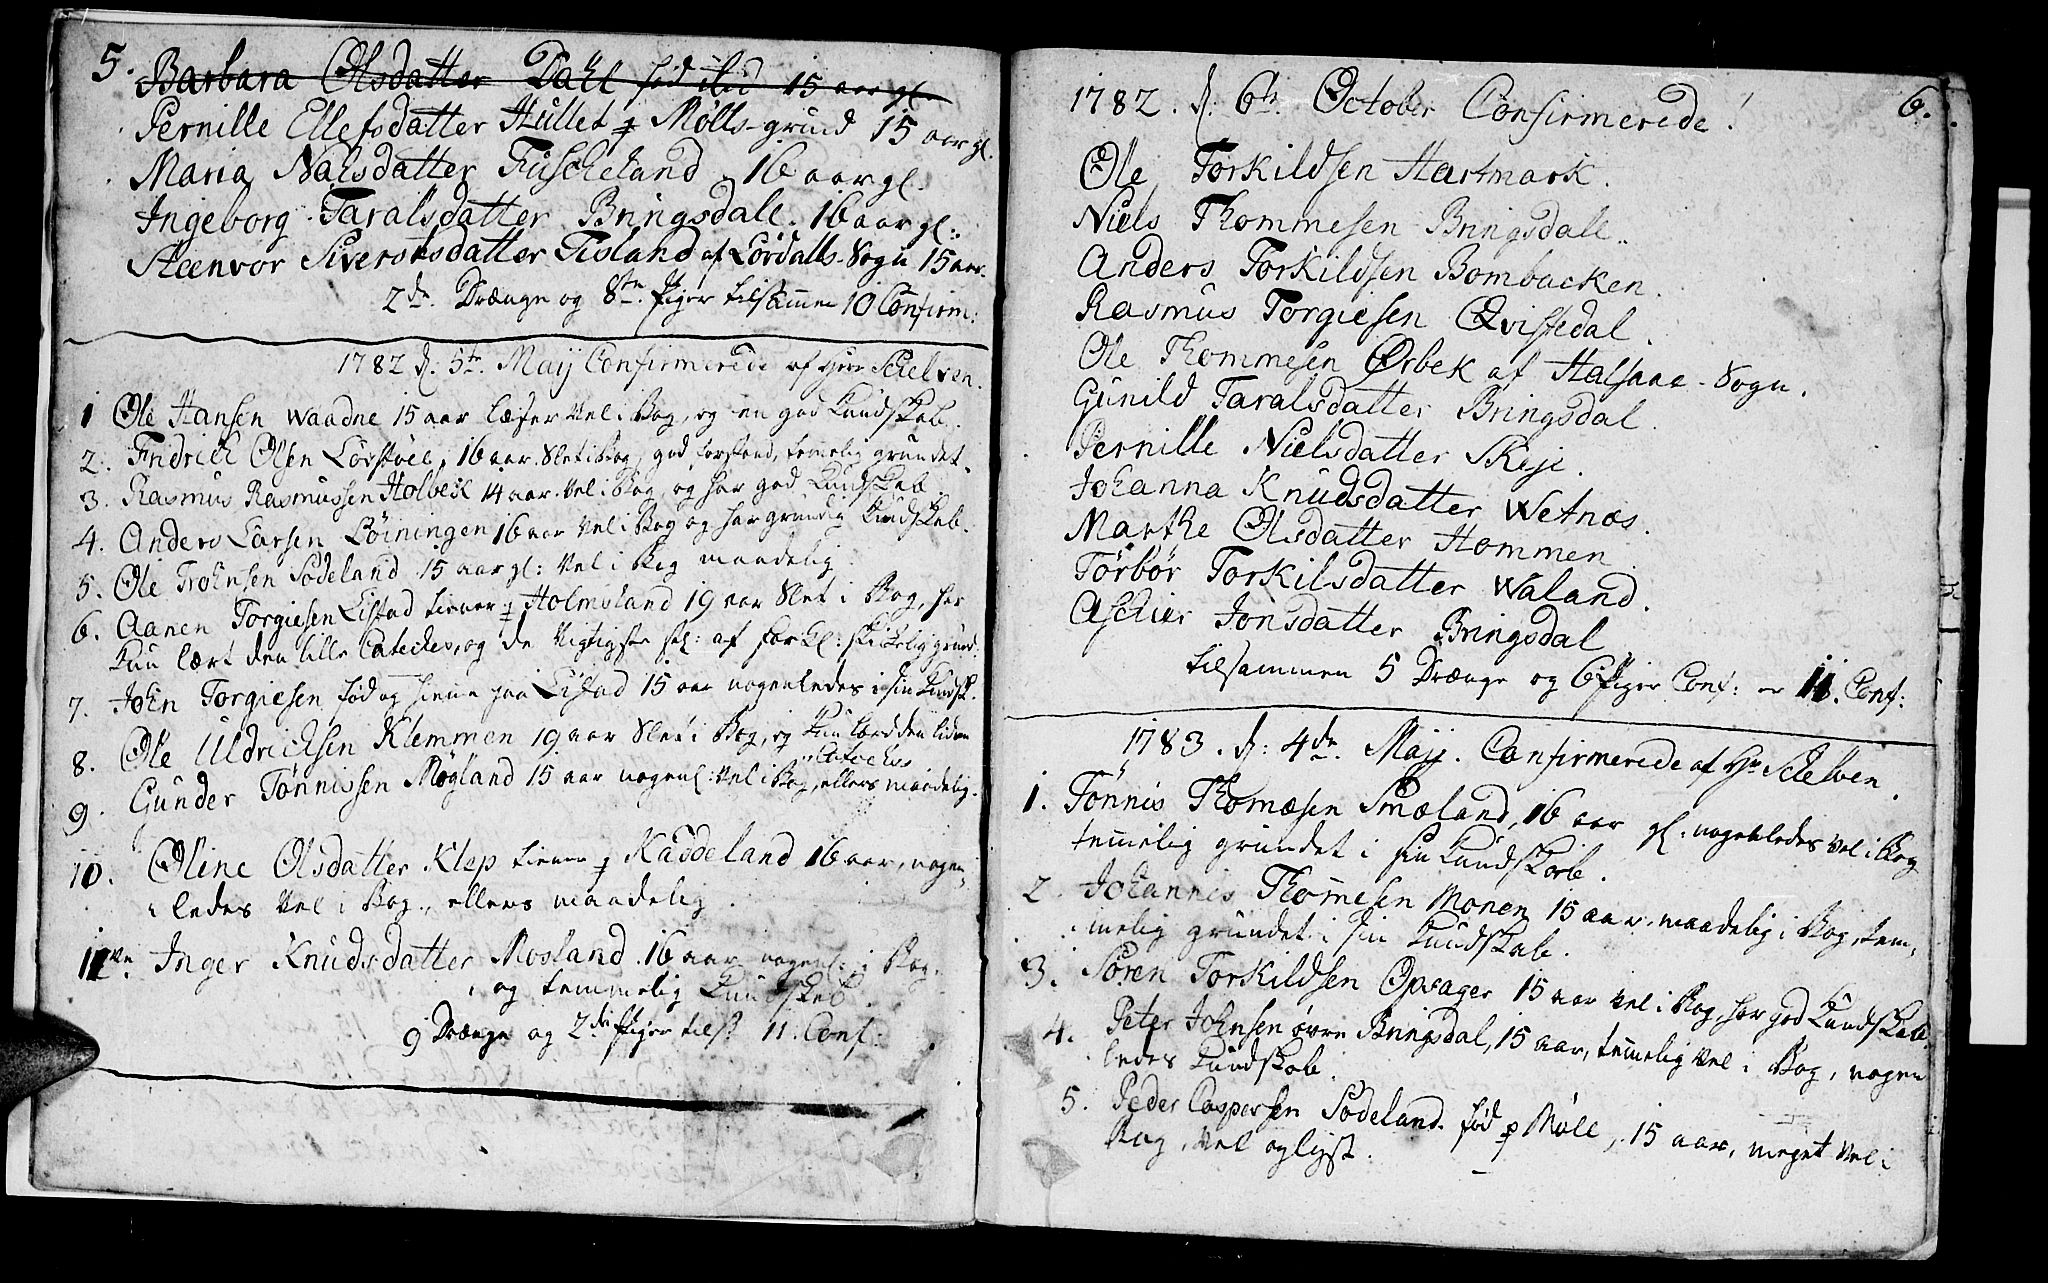 5.
Barbara Olsdatter Dahl fød ilid 15 aar gl.
Pernille Ellefsdatter Hullet p Mølls-grund 15 aar gl.
Maria Nalsdatter Fuscheland 16 aar gl.
Ingeborg Taralsdatter Bringsdall. 16 aar gl:
Steenvor Siversdatter Tisland af Lørdalls-Sogn 15 aar.
2de Drænge og 8te Piger tilsammen 10 Confirm:
1782 d: 5te Maij Confirmerede af Herr Schelven.
1 Ole Hansen Waadne 15 aar læser vel i Bog, og en god Kundskab.
2. Fridrich Olsen Lørstvel, 16 aar. Slet i Bog, god forstand, temelig grundet.
3. Rasmus Rasmussen Holbek 14 aar. Vel i Bog, og har god Kundskab
4. Anders Larsen Løiningen 16 aar Vel i Bog og har grundig Kundskab.
5. Ole Trohnsen Sodeland 15 aar gl: Vel i Bog maadelig.
6. Aanen Torgiesen Eistad tiener p Holmesland 19 aar Slet i Bog, har
kun lært den lille Cateches, og de Vigtigste st: af forkl: skikkelig grund.
7. John Torgiesen fød og hieme paa Eistad 15 aar nogenledes i sin Kundsk.
8. Ole Uldrichsen Klemmen 19 aar Slet i Bog, og kun lærd den liden
Cateches
9. Gunder Tønnissen Møgland 15 aar nogenl: Vel i Bog, ellers maadelig.
10. Oline Olsdatter Klep tiener p Kaddeland 16 aar, nogen,
ledes Vel i Bog, ellers maadelig.
11ve. Inger Knudsdatter Mosland 16 aar nogenl: i Bog.
og temmelig Kundskab.
9 Drænge og 2de Piger tils: 11. Conf:
6.
1782. d: 6te October Confirmerede!
Ole Torkildsen Hartmark.
Niels Thommesen Bringsdall.
Anders Torkildsen Bombacken.
Rasmus Torgiesen Qvisledal.
Ole Thommesen Ørbek af Halsaae-Sogn.
Gunild Taralsdatter Bringsdal.
Pernille Nielsdatter Skeje.
Johanna Knudsdatter Wetnæs.
Marthe Olsdatter Hommen.
Tørbør Torkilsdatter Waland.
Aschier Jonsdatter Bringsdal
tilsammen 5 Drænge og 6 Piger Conf: er 11. Conf:
1783. d: 4de Maij. Confirmerede af Hr Schelven.
1. Tønnis Thomæsen Smæland, 16 aar gl: nogenledes vel i Bog
temelig grundet i sin Kundskab.
2. Johannis Thomesen Monen 15 aar, maadelig i Bog, tem,
melig grundet i sin Kundskab.
3. Søren Torkildsen Opsager 15 aar vel i Bog, har god Kundskab.
4. Peter Johnsen øvre Bringsdal, 15 aar, temelig vel i Bog, nogen
ledes Kundskab.
5. Peder Caspersen Sodeland fød p Møll, 15 aar, meget vel i
Bog, vel oglyst.